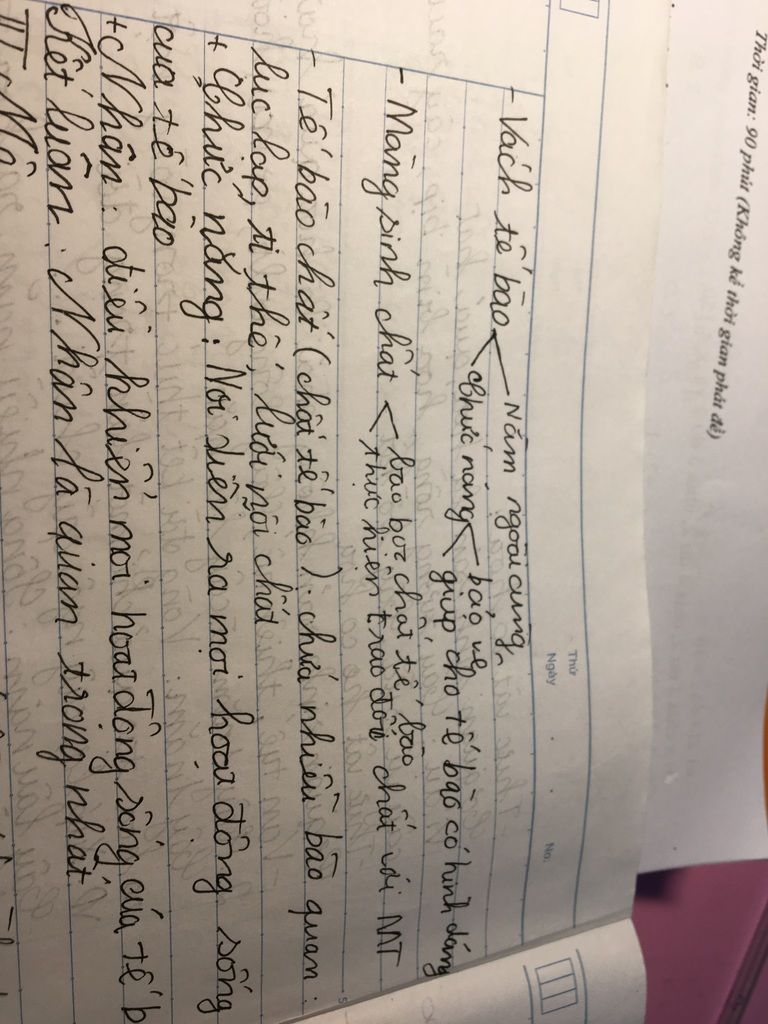 Thời gian: 90 phút (Không kể thời gian phát đề)
Thứ
Ngày . . No.
- Vách tế bào < Nằm ngoài cùng
Chức năng < bảo vệ
giúp cho tế bào có hình dáng
- Màng sinh chất < bao bọc chất tế bào
thực hiện trao đổi chất với MT
- Tế bào chất (chất tế bào): chứa nhiều bào quan:
lục lạp, ti thể, lưới nội chất
+ Chức năng: Nơi diễn ra mọi hoạt động sống
của tế bào
+ Nhân: điều khiển mọi hoạt động sống của tế b
Kết luận: Nhân là quan trọng nhất
III Mô